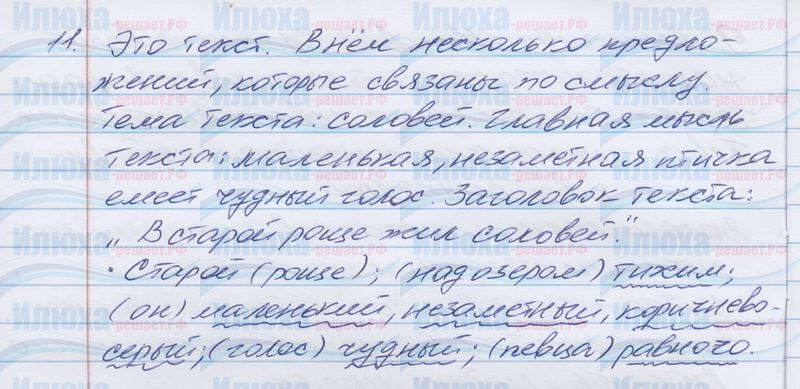 11. Это текст. В нём несколько предло-
жений, которые связаны по смыслу.
Тема текста: соловей. Главная мысль
текста: маленькая, незаметная птичка
емеет чудный голос. Заголовок текста:
„ В старой роще жил соловей."
· Старой (роще); (над озером) тихим;
(он) маленький, незаметный, коричнево-
серый; (голос) чудный; (певца) равного.